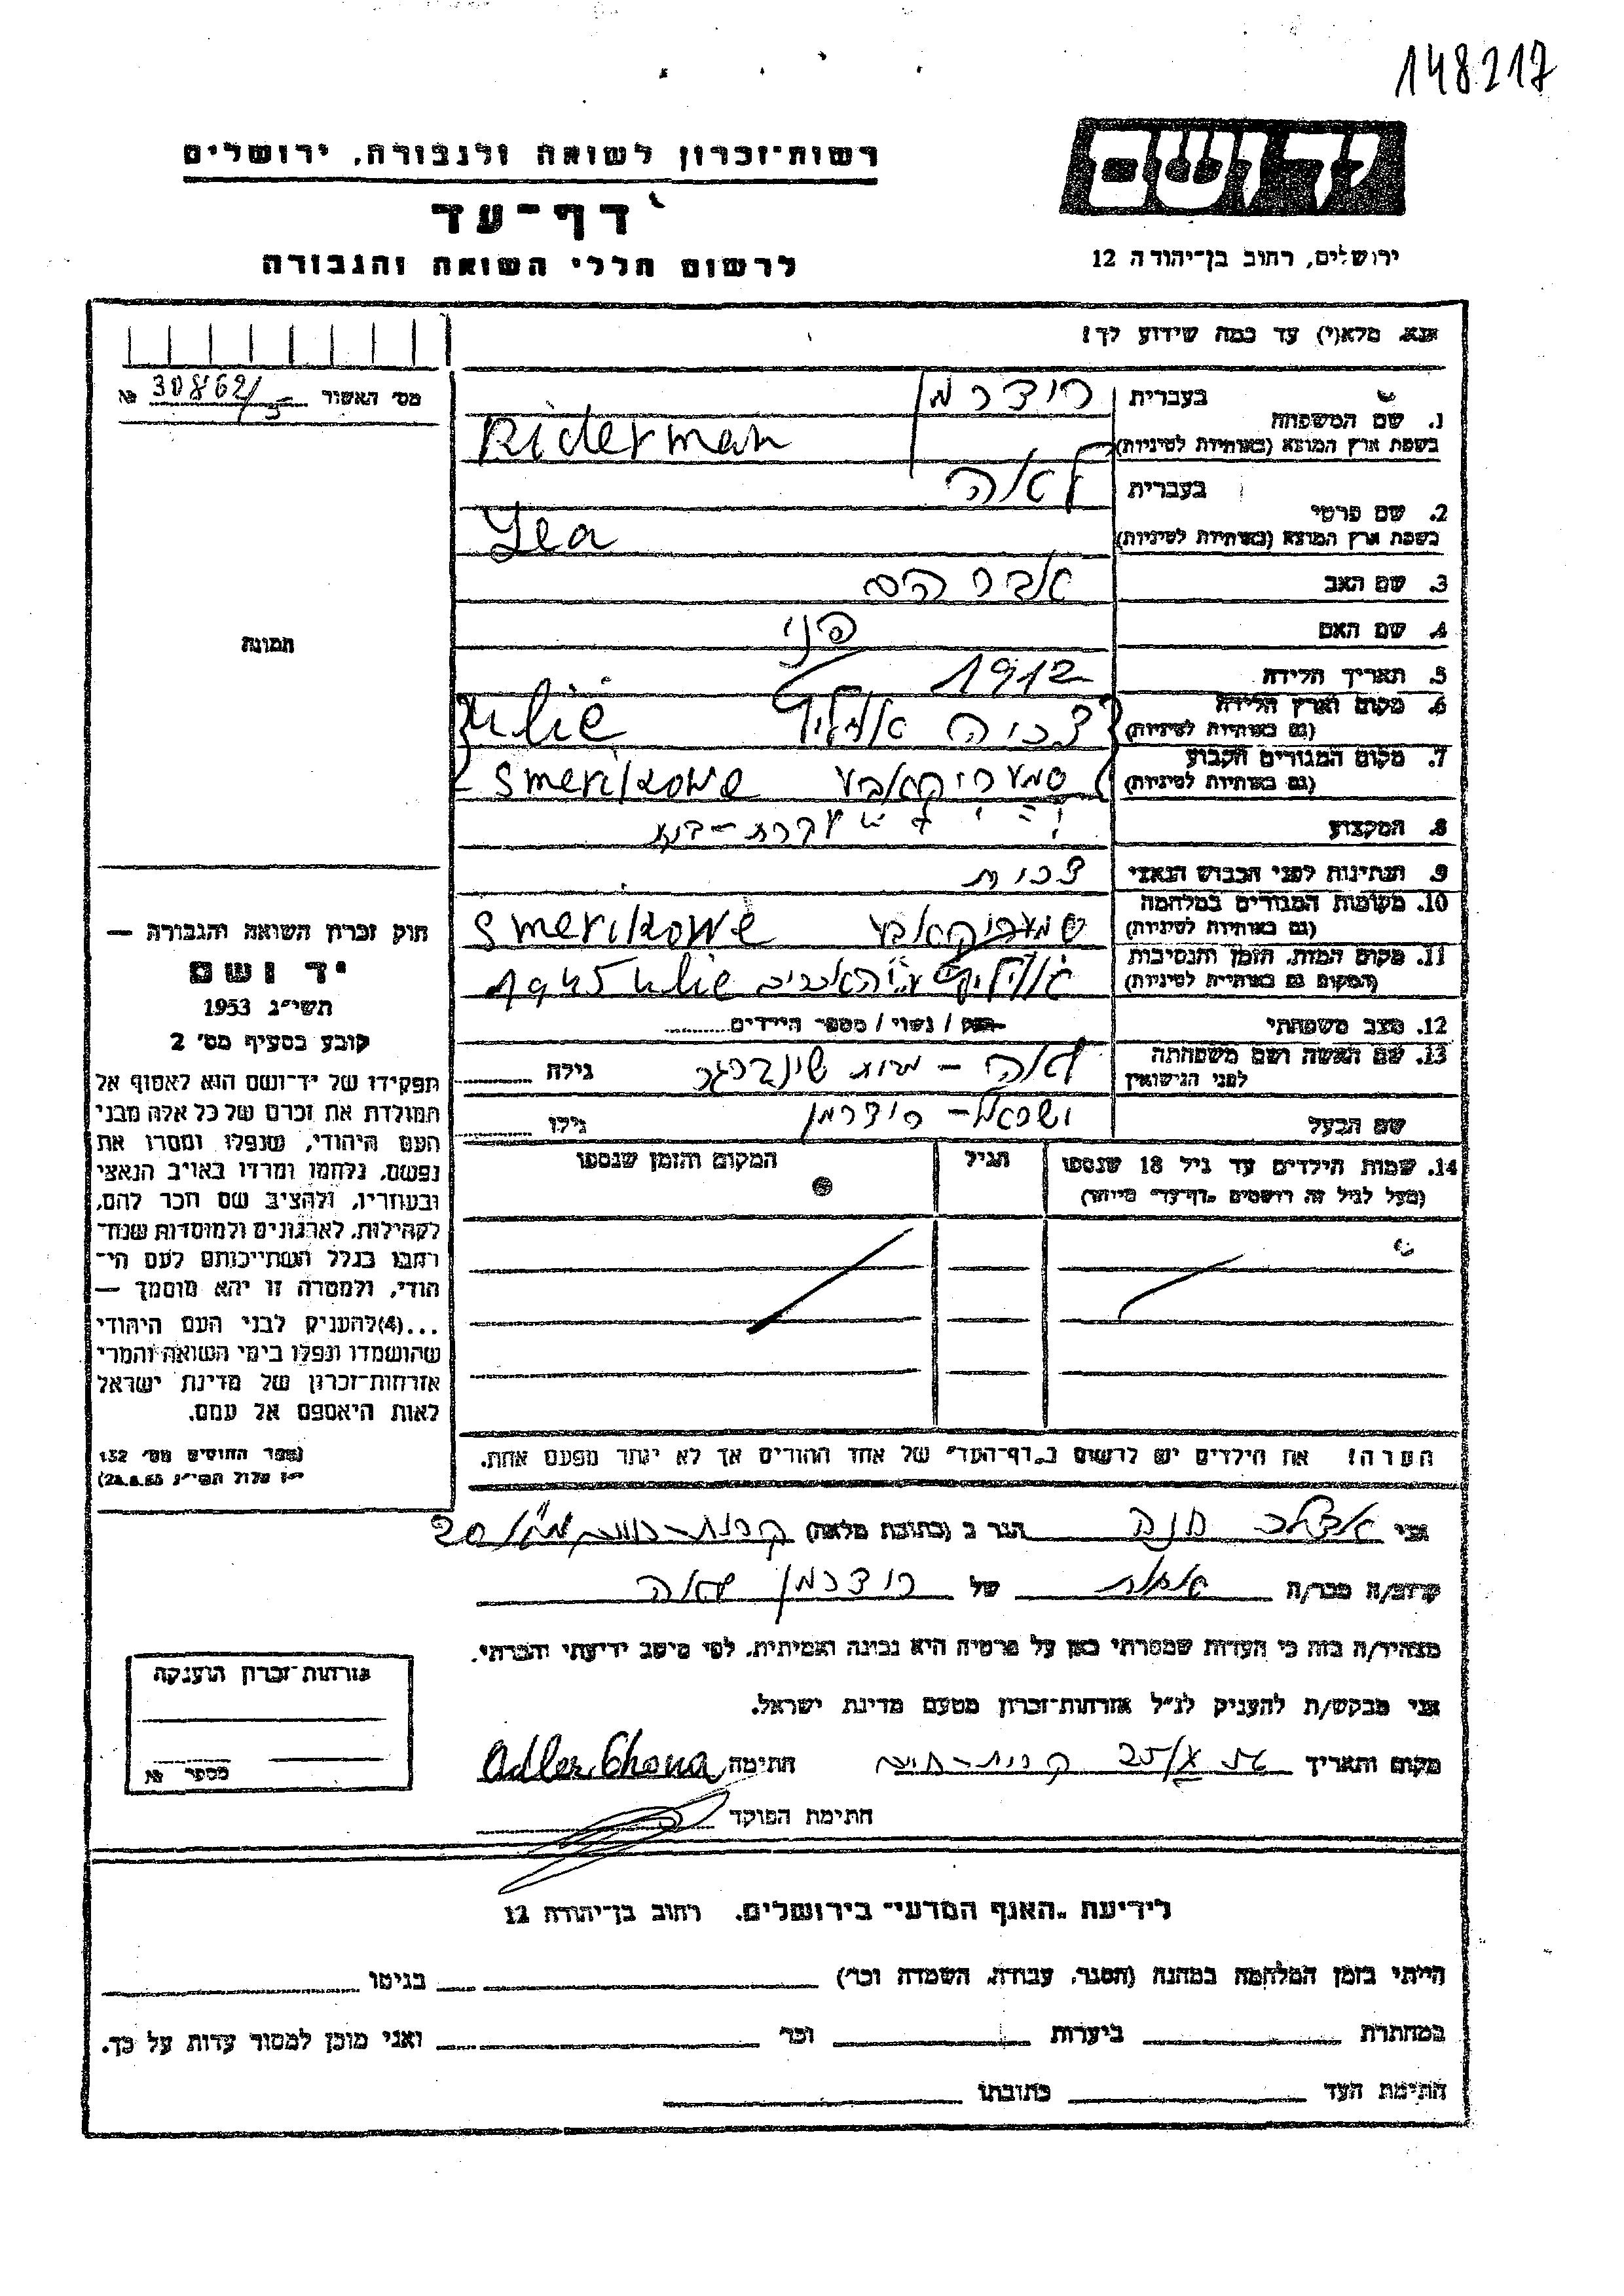 148217
רשות־זכרון לשואה ולגבורה, ירושלים
יד ושם
דף־עד
ירושלים, רחוב בן־יהודה 12
לרשום חללי השואה והגבורה
אנא, מלא(י) עד כמה שידוע לך!
מס' האשור 30862/5 №
בעברית רודרמן
1. שם המשפחה
בשפת ארץ המוצא (באותיות לטיניות) Riderman
בעברית לאה
2. שם פרטי
בשפת ארץ המוצא (באותיות לטיניות) Lea
3. שם האב אברהם
4. שם האם פני
תמונה
5. תאריך הלידה 1912
6. מקום וארץ הלידה
(גם באותיות לטיניות)
7. מקום המגורים הקבוע
(גם באותיות לטיניות) Smerikowe
8. המקצוע עקרת-בית
9. הנתינות לפני הכבוש הנאצי
10. מקומות המגורים במלחמה
(גם באותיות לטיניות) Smerikowe
11. מקום המות, הזמן והנסיבות
(המקום גם באותיות לטיניות)
12. מצב משפחתי רווק / נשוי / מספר הילדים
13. שם האשה ושם משפחתה
לפני הנישואין לאה - גילה
שם הבעל ישראל - רודרמן גילו
14. שמות הילדים עד גיל 18 שנספו הגיל המקום והזמן שנספו
(מעל לגיל זה רושמים „דף־עד״ מיוחד)
חוק זכרון השואה והגבורה —
יד ושם
תשי״ג 1953
קובע בסעיף מס' 2
תפקידו של יד־ושם הוא לאסוף אל
המולדת את זכרם של כל אלה מבני
העם היהודי, שנפלו ומסרו את
נפשם, נלחמו ומרדו באויב הנאצי
ובעוזריו, ולהציב שם וזכר להם,
לקהילות, לארגונים ולמוסדות שנח־
רבו בגלל השתייכותם לעם הי־
הודי, ולמטרה זו יהא מוסמך —
...(4)להעניק לבני העם היהודי
שהושמדו ונפלו בימי השואה והמרי
אזרחות־זכרון של מדינת ישראל
לאות היאספם אל עמם.
(ספר החוקים מס' 132
הערה! את הילדים יש לרשום ב„דף־העד״ של אחד ההורים אך לא יותר מפעם אחת.
אני אדלר חנה הגר ב (כתובת מלאה)
קרוב/ה מכר/ה של רודרמן לאה
מצהיר/ה בזה כי העדות שמסרתי כאן על פרטיה היא נכונה ואמיתית, לפי מיטב ידיעתי והכרתי.
אני מבקש/ת להעניק לנ״ל אזרחות־זכרון מטעם מדינת ישראל.
אזרחות־זכרון הוענקה
מספר №
מקום ותאריך 25/X 56 חתימה Adler Chona
חתימת הפוקד
לידיעת „האגף המדעי״ בירושלים, רחוב בן־יהודה 12
הייתי בזמן המלחמה במחנה (הסגר, עבודה, השמדה וכו') בגיטו
במחתרת ביערות וכו' ואני מוכן למסור עדות על כך.
חתימת העד כתובתו